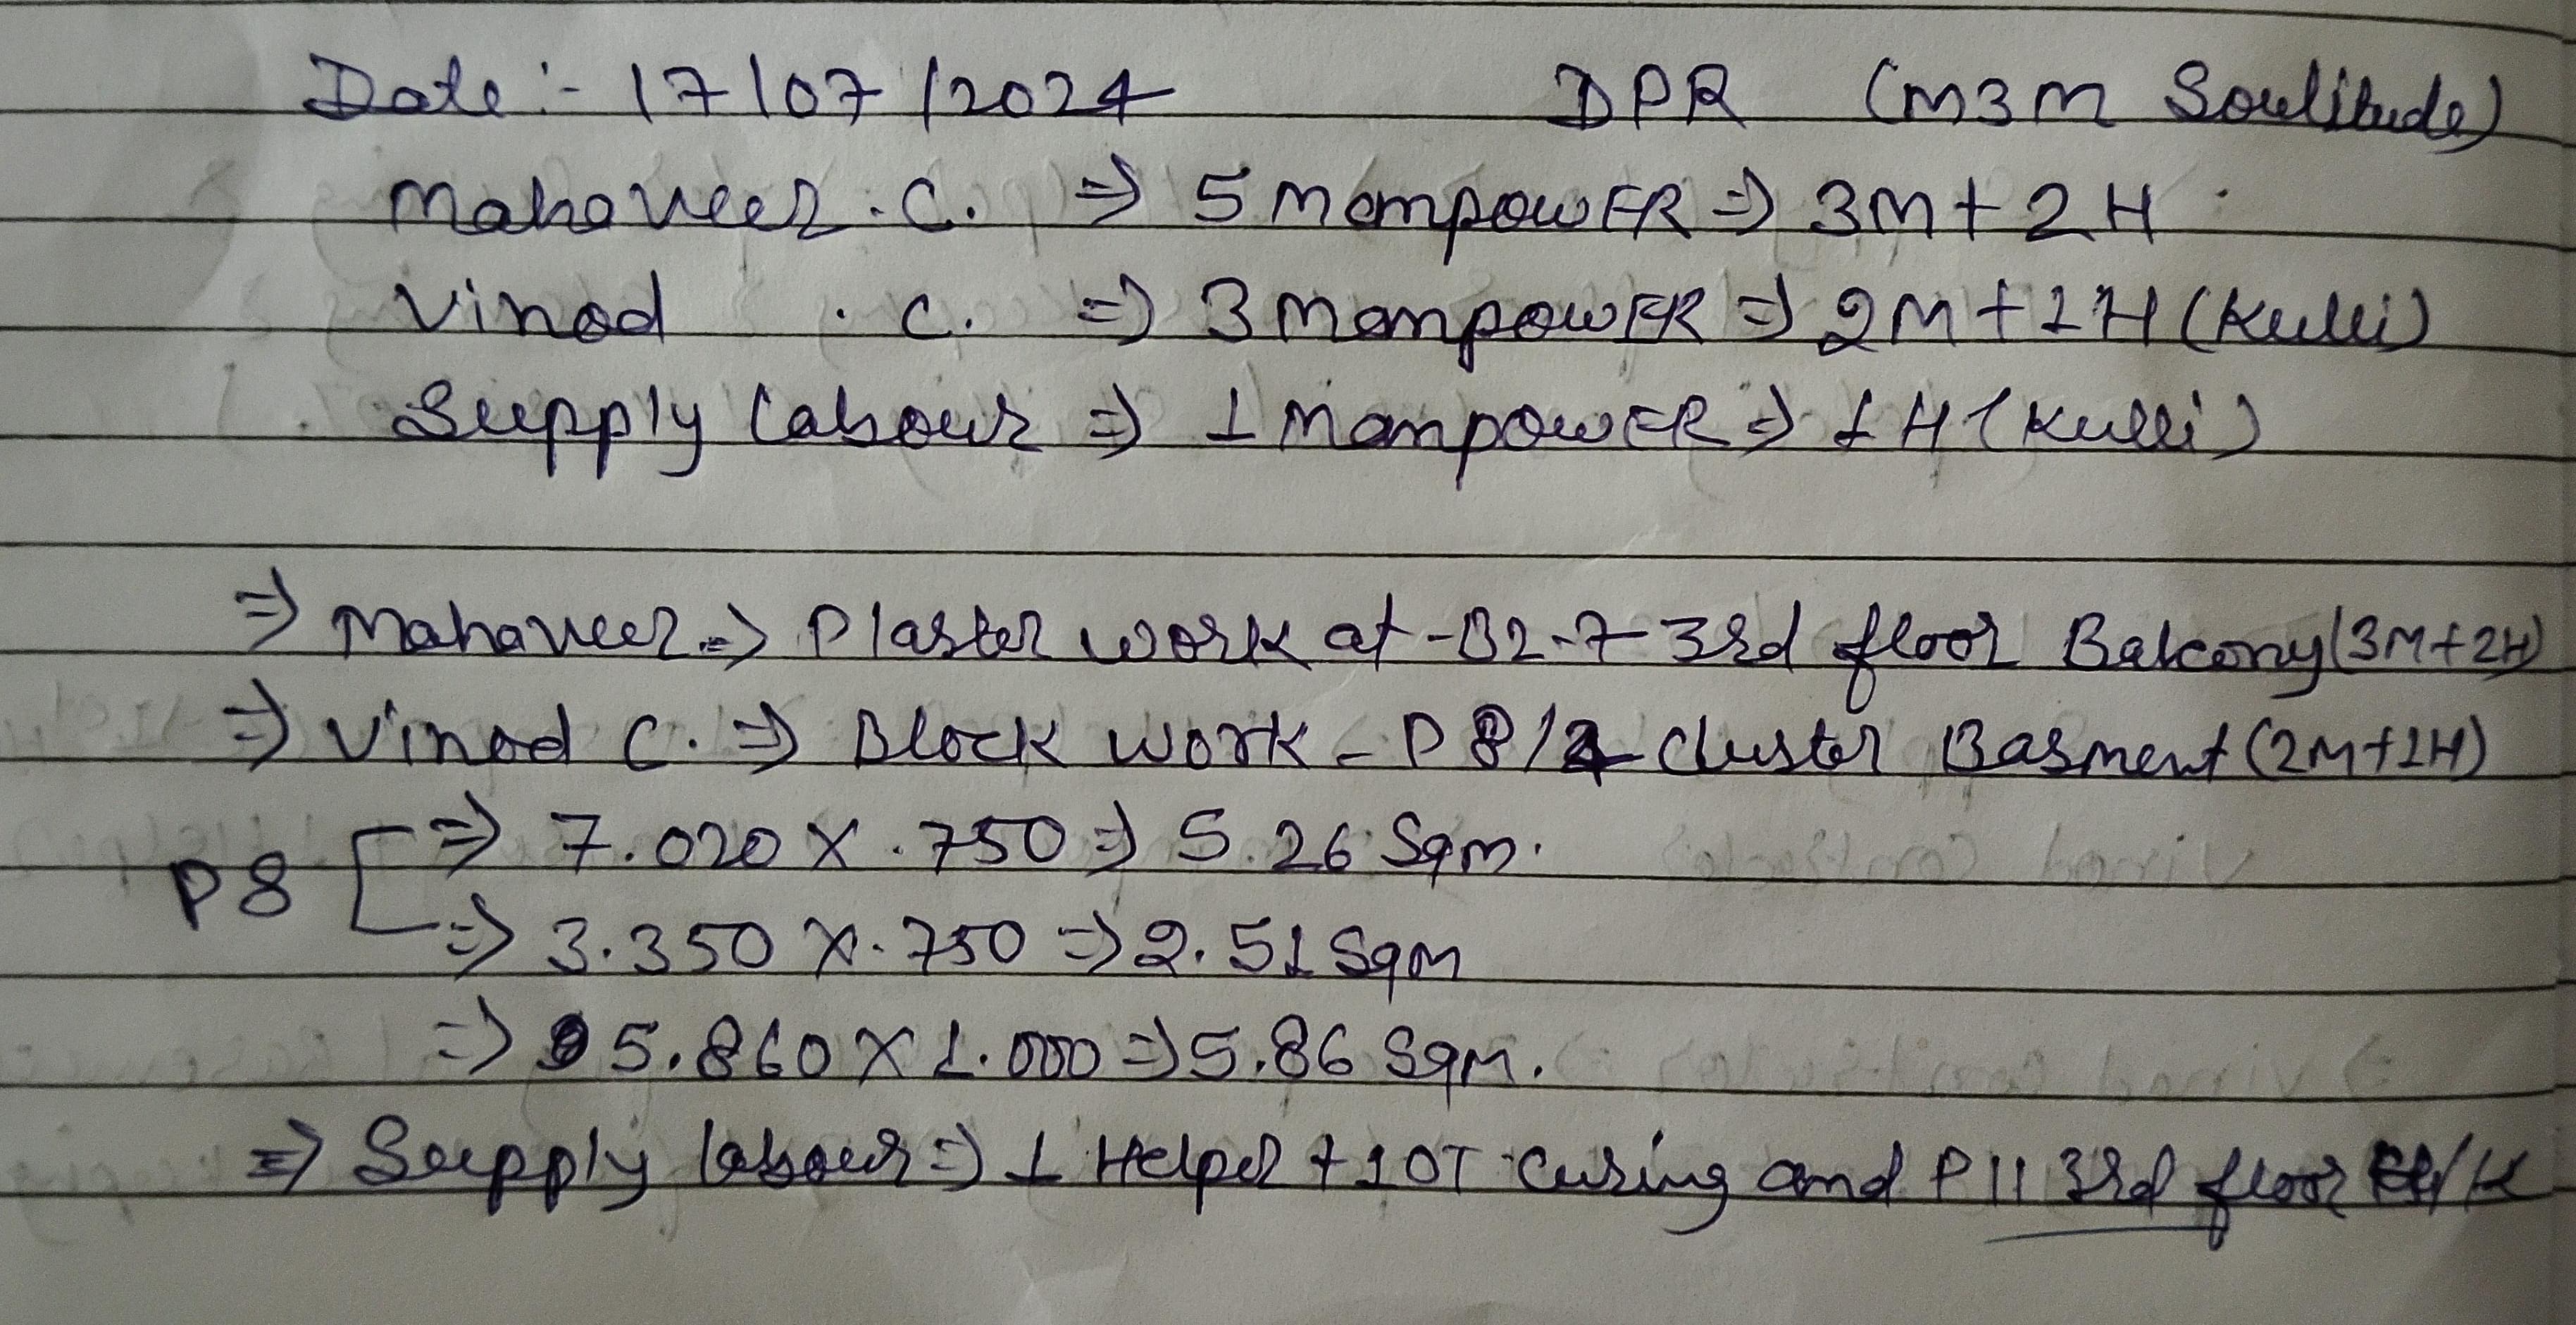 Date :- 17/07/2024 DPR (M3M Soulitude)
Mahaveer . C. => 5 ManpowER => 3M + 2H
Vinod . C. => 3 ManpowER => 2M + 1H (Kulli)
Supply labour => 1 ManpowER => 1H (Kulli)
=> Mahaveer => Plaster work at - B2-7 3rd floor Balcony (3M+2H)
=> Vinod C. => Block work - P8/2 Cluster Basment (2M+1H)
P8 [ => 7.020 X .750 => 5.26 Sqm.
=> 3.350 X .750 => 2.51 Sqm
=> 5.860 X 1.000 => 5.86 Sqm.
=> Supply labour => 1 Helper + 1 OT Curing and P11 3rd floor H/K